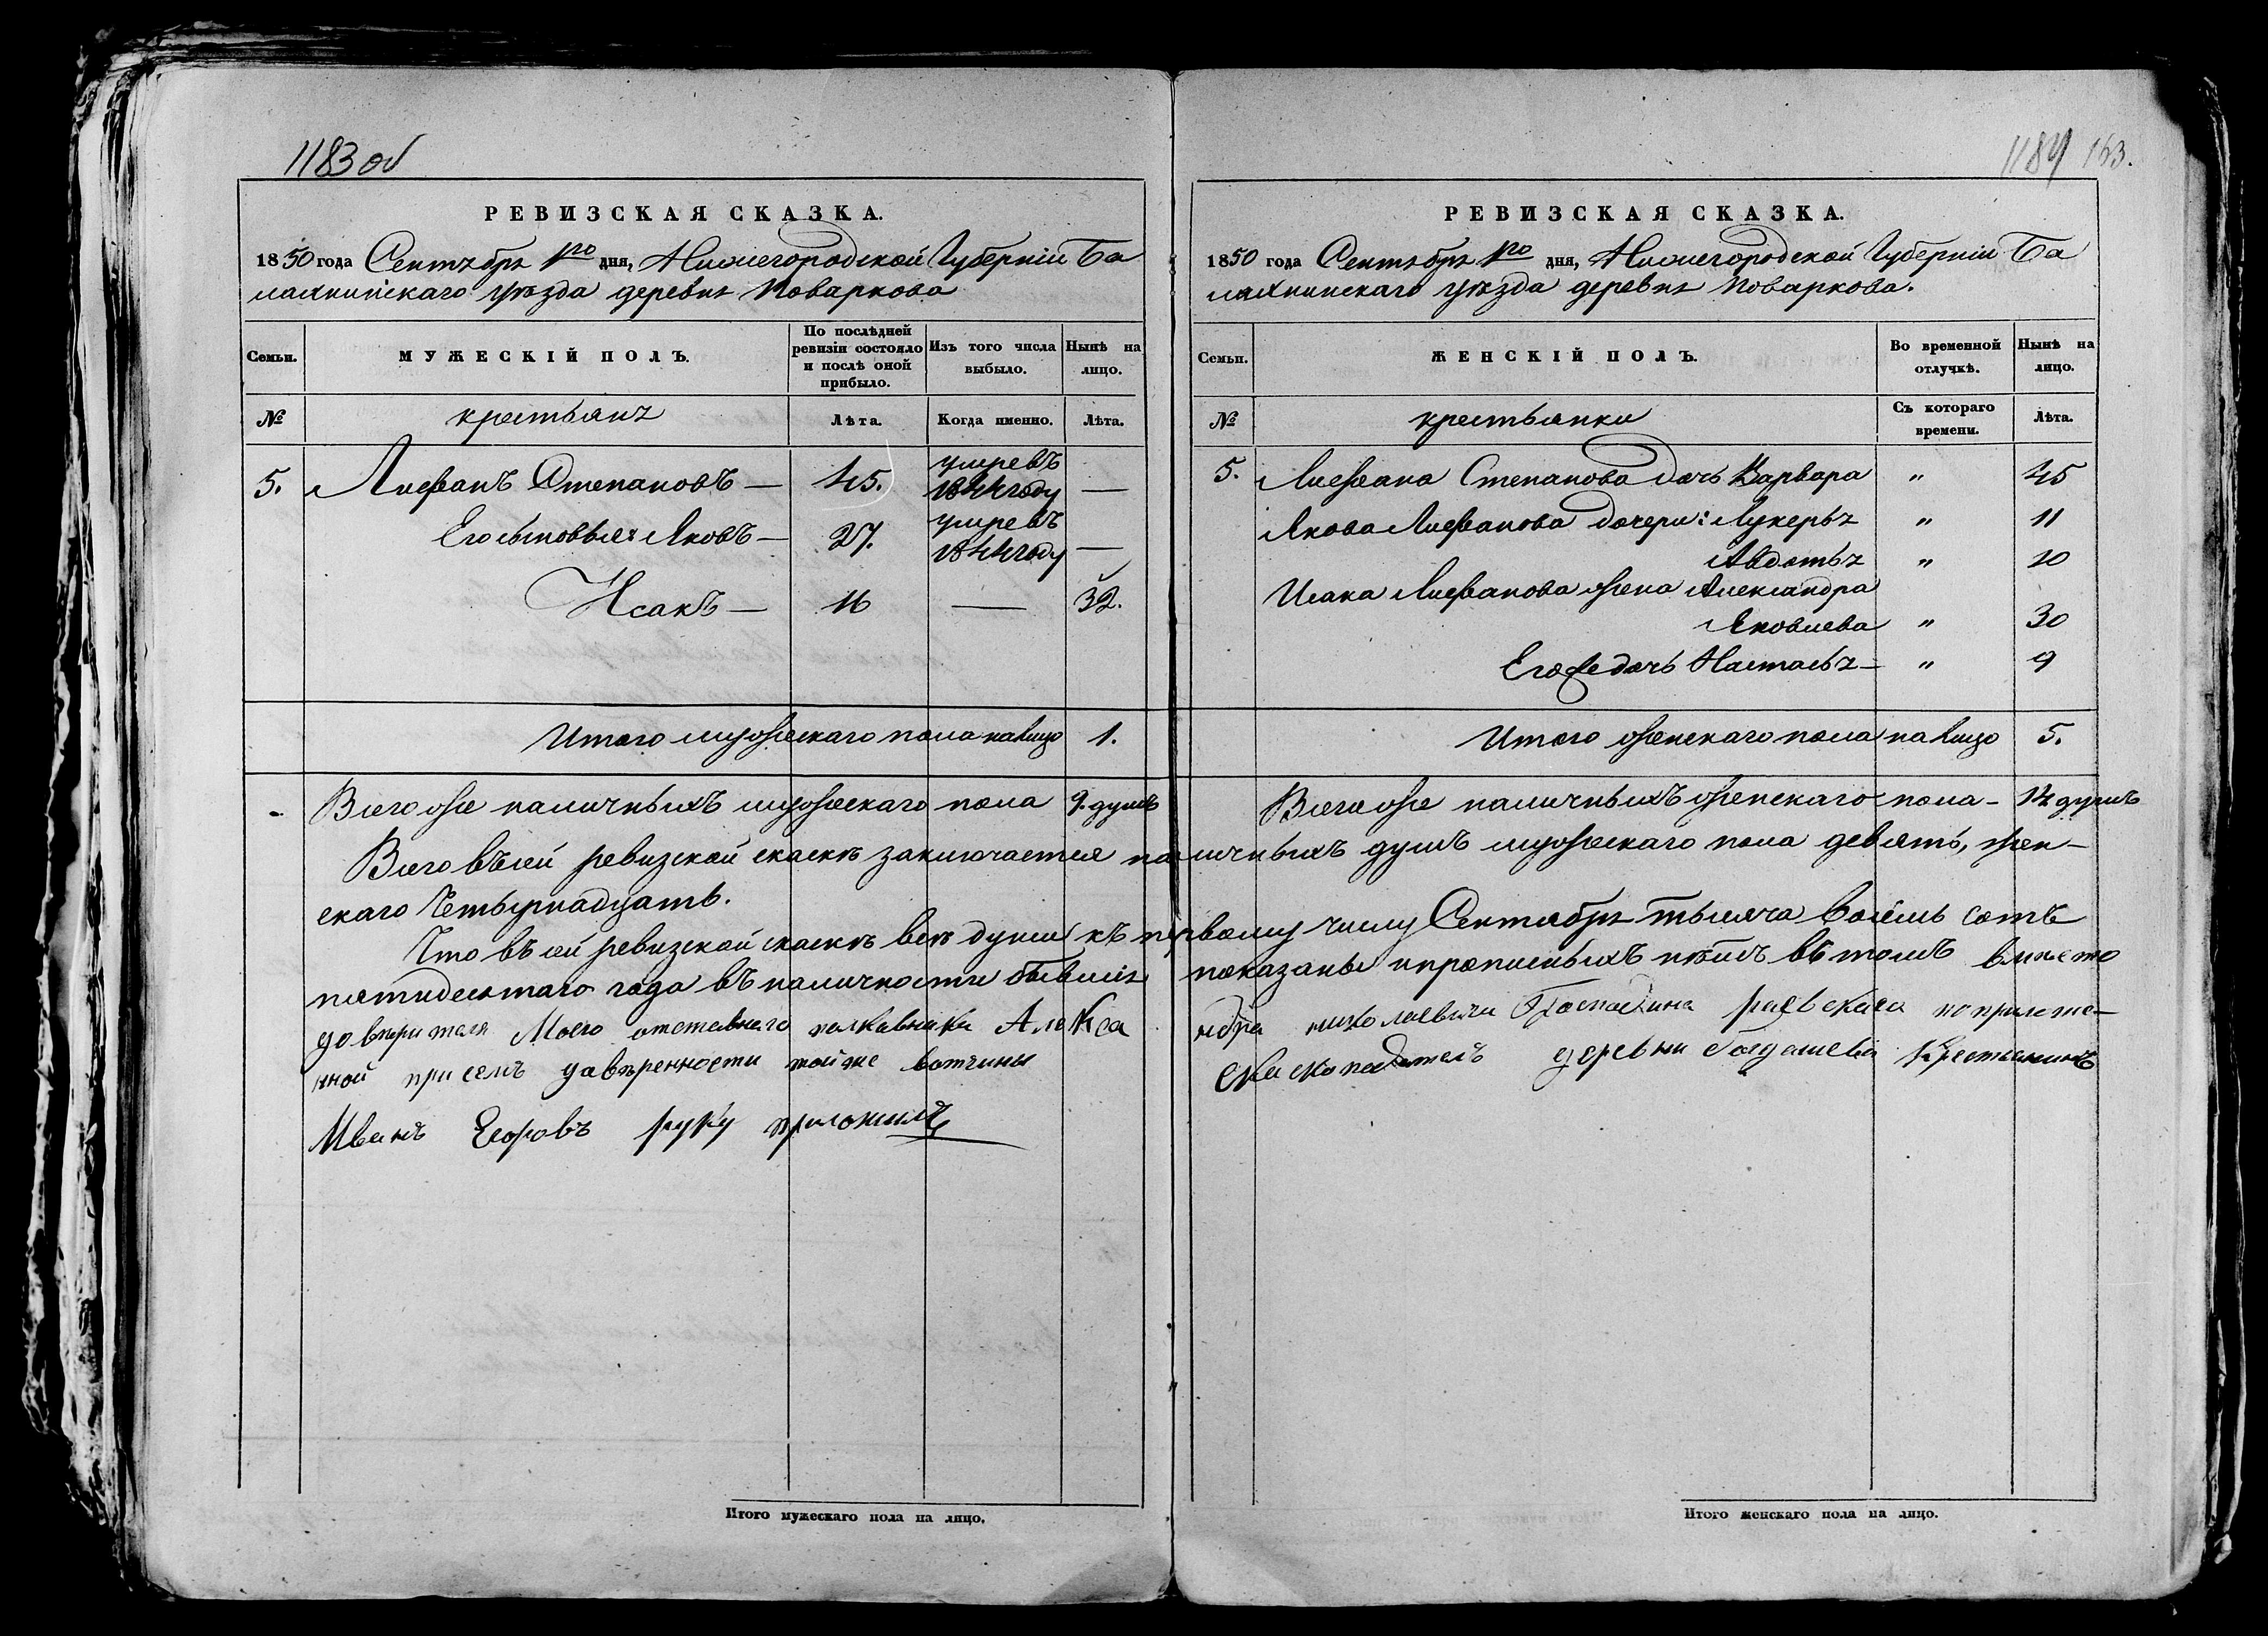 1183 об
РЕВИЗСКАЯ СКАЗКА.
1850 года Сентября 1го дня, Нижегородской Губерніи Ба
лахнинскаго уѣзда деревни Поваркова
Семьи.
МУЖЕСКІЙ ПОЛЪ.
По послѣдней ревизіи состояло и послѣ оной прибыло.
Изъ того числа выбыло.
Нынѣ на лицо.
№
крестьяня
Лѣта.
Когда именно.
Лѣта.
5. Лифанъ Степановъ — 45. умревъ 1844 году —
Его сыновья: Яковъ — 27. умревъ 1844 году —
Исакъ — 16 — 32.
Итого мужескаго пола на лицо 1.
Всего же наличныхъ мужескаго пола 9. душъ
1184 163.
РЕВИЗСКАЯ СКАЗКА.
1850 года Сентября 1го дня, Нижегородской Губерніи Ба
лахнинскаго уѣзда деревни Поваркова.
Семьи.
ЖЕНСКІЙ ПОЛЪ.
Во временной отлучкѣ.
Нынѣ на лицо.
№
крестьянки
Съ котораго времени.
Лѣта.
5. Лифана Степанова дочь Варвара " 45
Якова Лифанова дочери: Лукерья " 11
Авдотья " 10
Исака Лифанова жена Александра
Яковлева " 30
Его же дочь Настасья — " 9
Итого женскаго пола на лицо 5.
Всего же наличныхъ женскаго пола — 14 душъ
Всего въ сей ревизской скаскѣ заключается наличныхъ душъ мужескаго пола девять, жен-
скаго Четырнадцать.
Что въ сей ревизской скаскѣ всѣ души къ первому числу Сентября тысяча восемь сотъ
пятидесятаго года въ наличности бывшія показаны и прописныхъ нѣтъ въ томъ вместо
доверителя Моего отставнаго полкавника Алекса ндра николаевича Господина раевскаго поприложе-
нной при семъ доверенности той же вотчины скаскоподатель деревни крестьянинъ
Иванъ Егоровъ руку приложилъ
Итого мужескаго пола на лицо.
Итого женскаго пола на лицо.